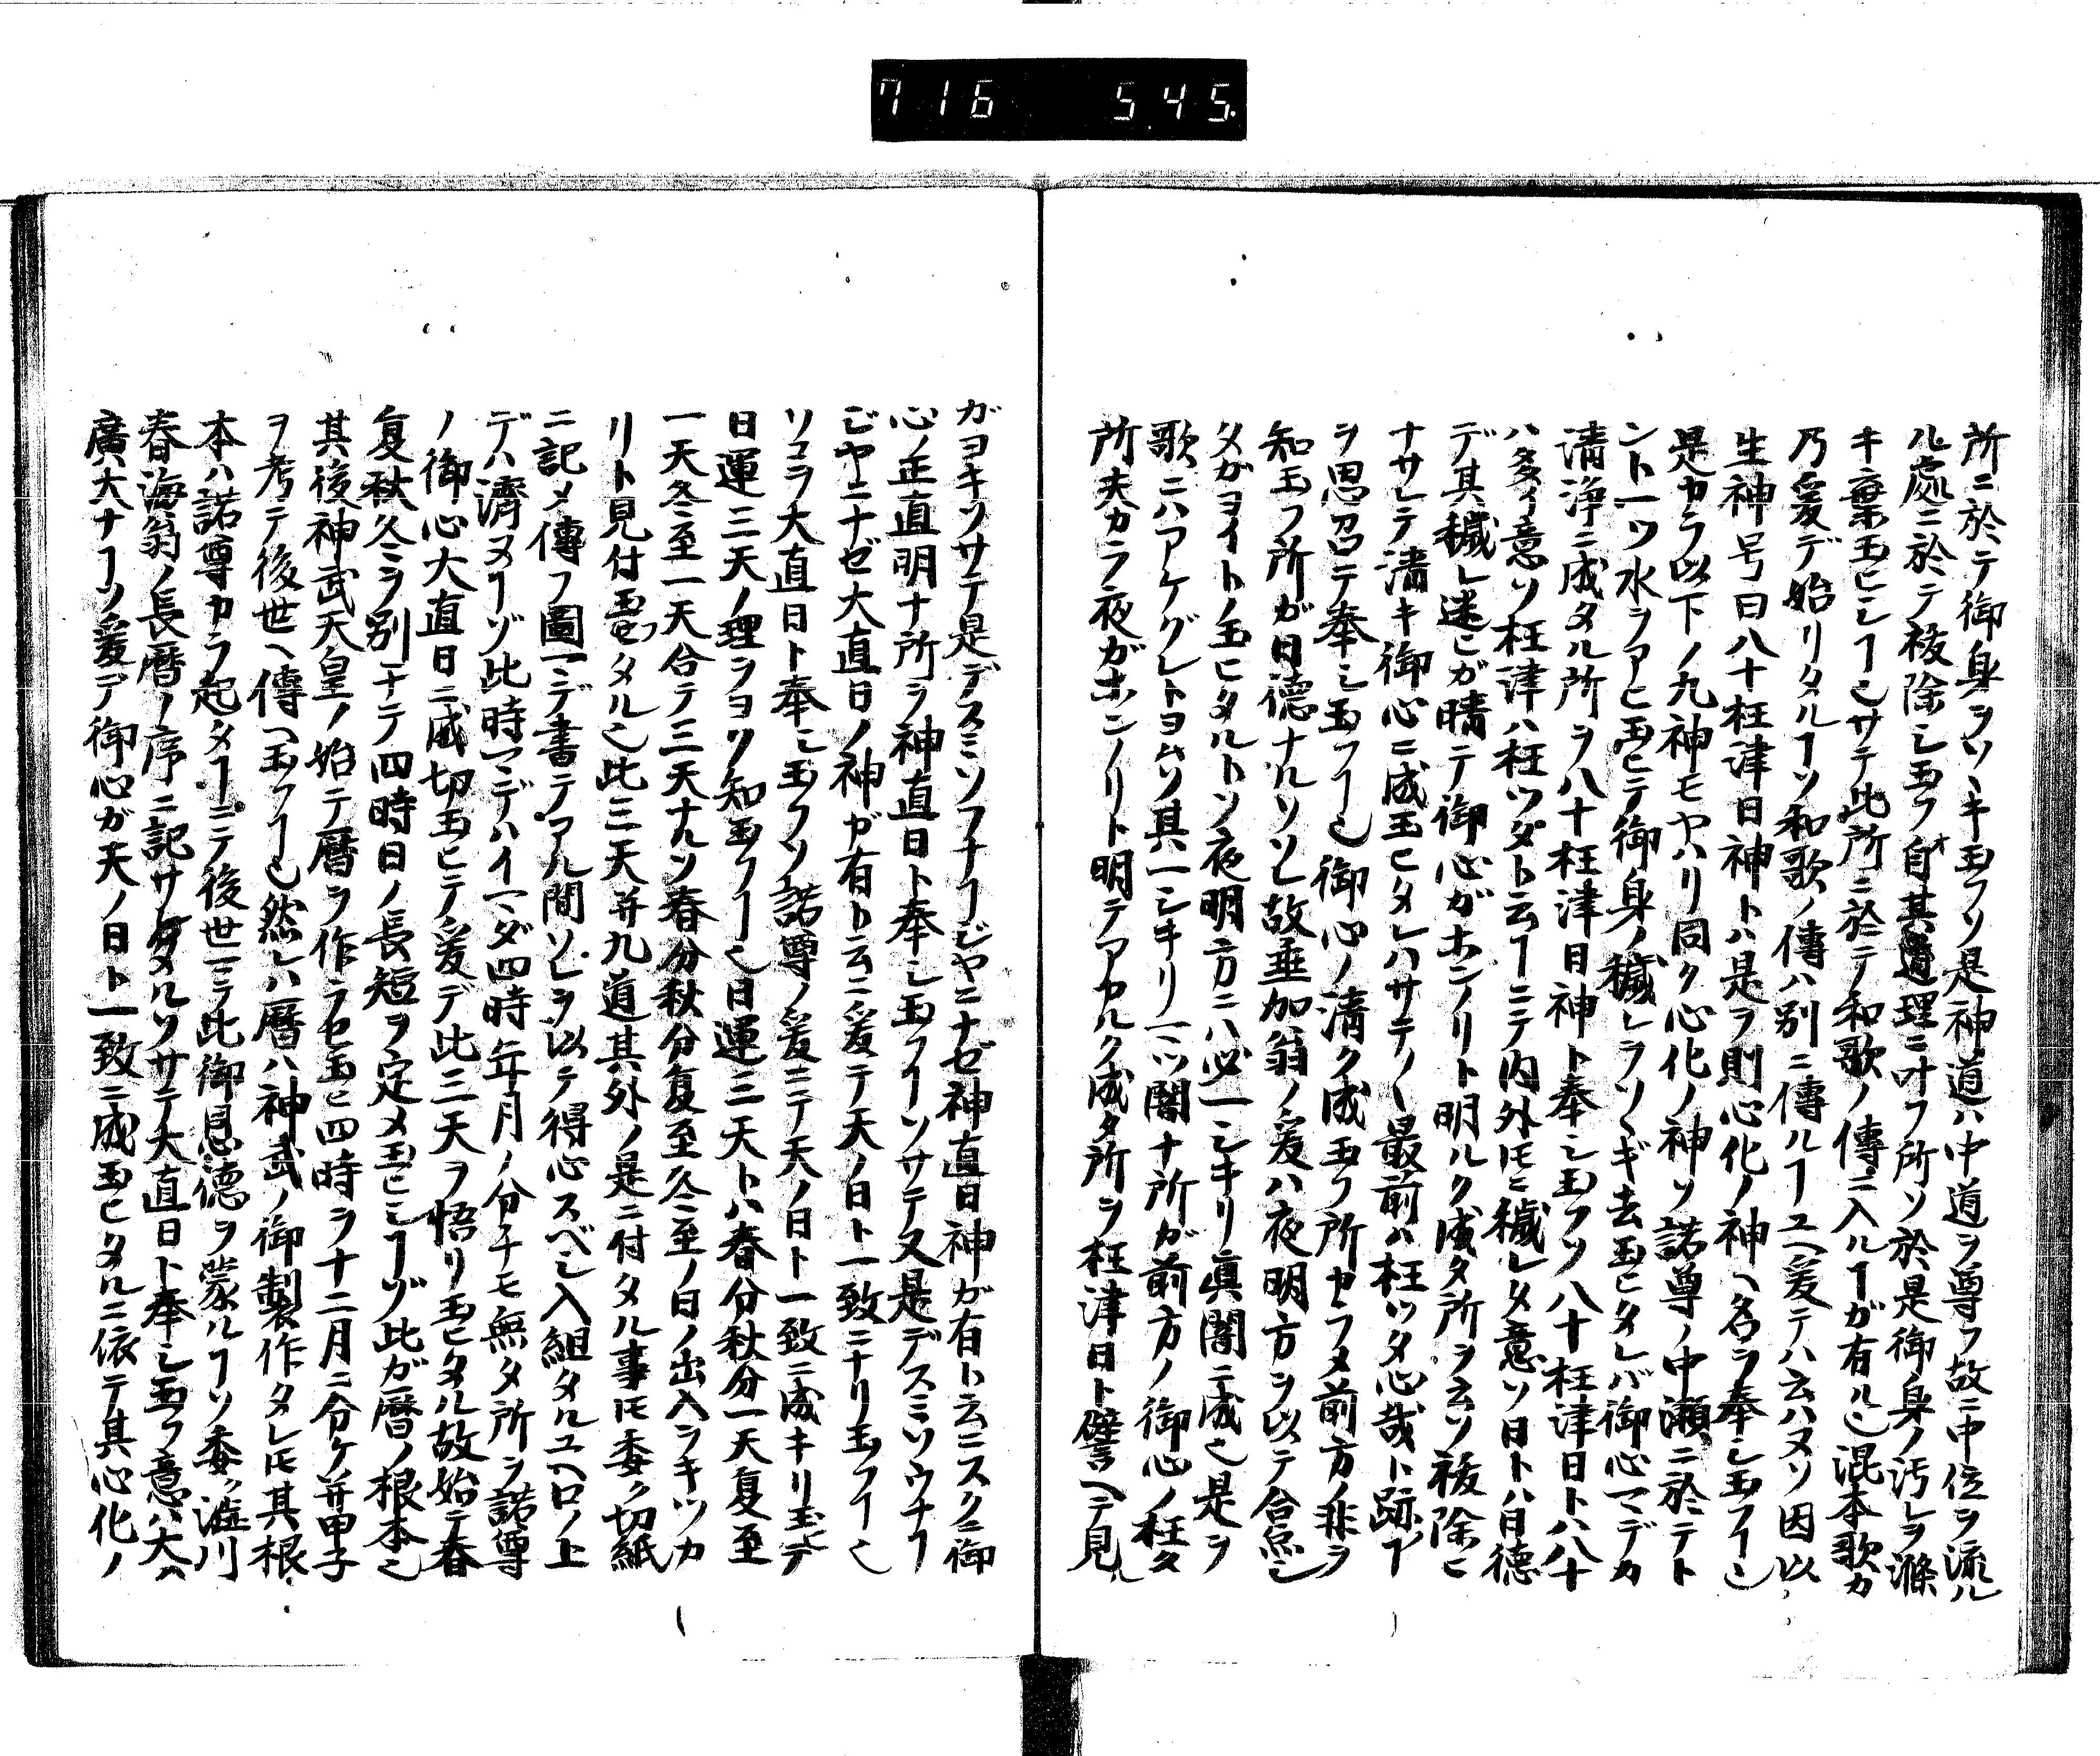 716 545.
所ニ於テ御身ヲソヽキ玉フソ是神道ハ中道ヲ尊フ故ニ中位ヲ流ル
ル處ニ於テ祓除シ玉フ自其道理ニ叶フ所ソ於是御身ノ汚レヲ滌
キ棄玉ヒシヿ也サテ此所ニ於テ和歌ノ傳ニ入ルヿガ有ル也混本歌カ
乃爰デ始リタルヿソ和歌ノ傳ハ別ニ傳ルヿユヘ爰テハ云ハヌソ因以
生神号曰八十枉津日神トハ是ヲ則心化ノ神ヘ名ヲ奉シ玉フヿ也
是カラ以下ノ九神モヤハリ同ク心化ノ神ソ諾尊ノ中瀬ニ於テト
ント一ツ水ヲアヒ玉ヒテ御身ノ穢レヲソヽギ去玉ヒタレバ御心マデカ
清浄ニ成タル所ヲ八十枉津日神ト奉シ玉フソ八十枉津日トハ八十
ハ多イ意ソ枉津ハ枉ツタト云ヿニテ内外𪜈ニ穢レタ意ソ日トハ日徳
デ其穢レ迷ヒガ晴テ御心ガホンノリト明ルク成タ所ヲ云ソ祓除ヒ
ナサレテ清キ御心ニ成玉ヒタレハサテ〳〵最前ハ枉ツタ心哉ト跡ヿ
ヲ思召テ奉シ玉フヿ也御心ノ清ク成玉フ所カラメ前方ノ非ヲ
知玉フ所ガ日徳ナルソソレ故垂加翁ノ爰ハ夜明方ヲ以テ合点シ
タガヨイトノ玉ヒタルトソ夜明方ニハ必一シキリ眞闇ニ成也是ヲ
歌ニハアケグレトヨムソ其一シキリ一ツ闇ナ所ガ前方ノ御心ノ枉タ
所夫カラ夜ガホンノリト明テアカルク成タ所ヲ枉津日ト譬ヘテ見ル
ガヨキソサテ是デスミソフナヿジヤニナゼ神直日神ガ有ト云ニスクニ御
心ノ正直明ナ所ヲ神直日ト奉シ玉フヿソサテ又是デスミソウナヿ
ジヤニナゼ大直日ノ神ガ有ト云ニ爰テ天ノ日ト一致ニナリ玉フヿ也
ソコヲ大直日ト奉シ玉フソ諾尊ノ爰ニテ天ノ日ト一致ニ成キリ玉ヒテ
日運三天ノ理ヲヨク知玉フヿ也日運三天トハ春分秋分一天夏至
一天冬至一天合テ三天ナルソ春分秋分夏至冬至ノ日ノ出入ヲキツカ
リト見付玉ヒタル也此三天并九道其外ノ是ニ付タル事𪜈委ク切紙
ニ記メ傳フ圖マデ書テアル間ソレヲ以テ得心スベシ入組タルユヘ口ノ上
デハ濟ヌヿゾ此時マデハイマダ四時年月ノ分チモ無タ所ヲ諾尊
ノ御心大直日ニ成切玉ヒテ爰デ此三天ヲ悟リ玉ヒタル故始テ春
夏秋冬ヲ別チテ四時日ノ長短ヲ定メ玉ヒシヿゾ此ガ暦ノ根本也
其後神武天皇ノ始テ暦ヲ作ラセ玉ヒ四時ヲ十二月ニ分ケ并甲子
ヲ考テ後世ヘ傳ヘ玉フヿ也然レハ暦ハ神武ノ御製作タレ𪜈其根
本ハ諾尊カラ起タヿニテ後世ニテ此御恩徳ヲ蒙ルヿソ委ク澁川
春海翁ノ長暦ノ序ニ記サレタルソサテ大直日ト奉シ玉フ意ハ大ハ
廣大ナヿソ爰デ御心ガ天ノ日ト一致ニ成玉ヒタルニ依テ其心化ノ